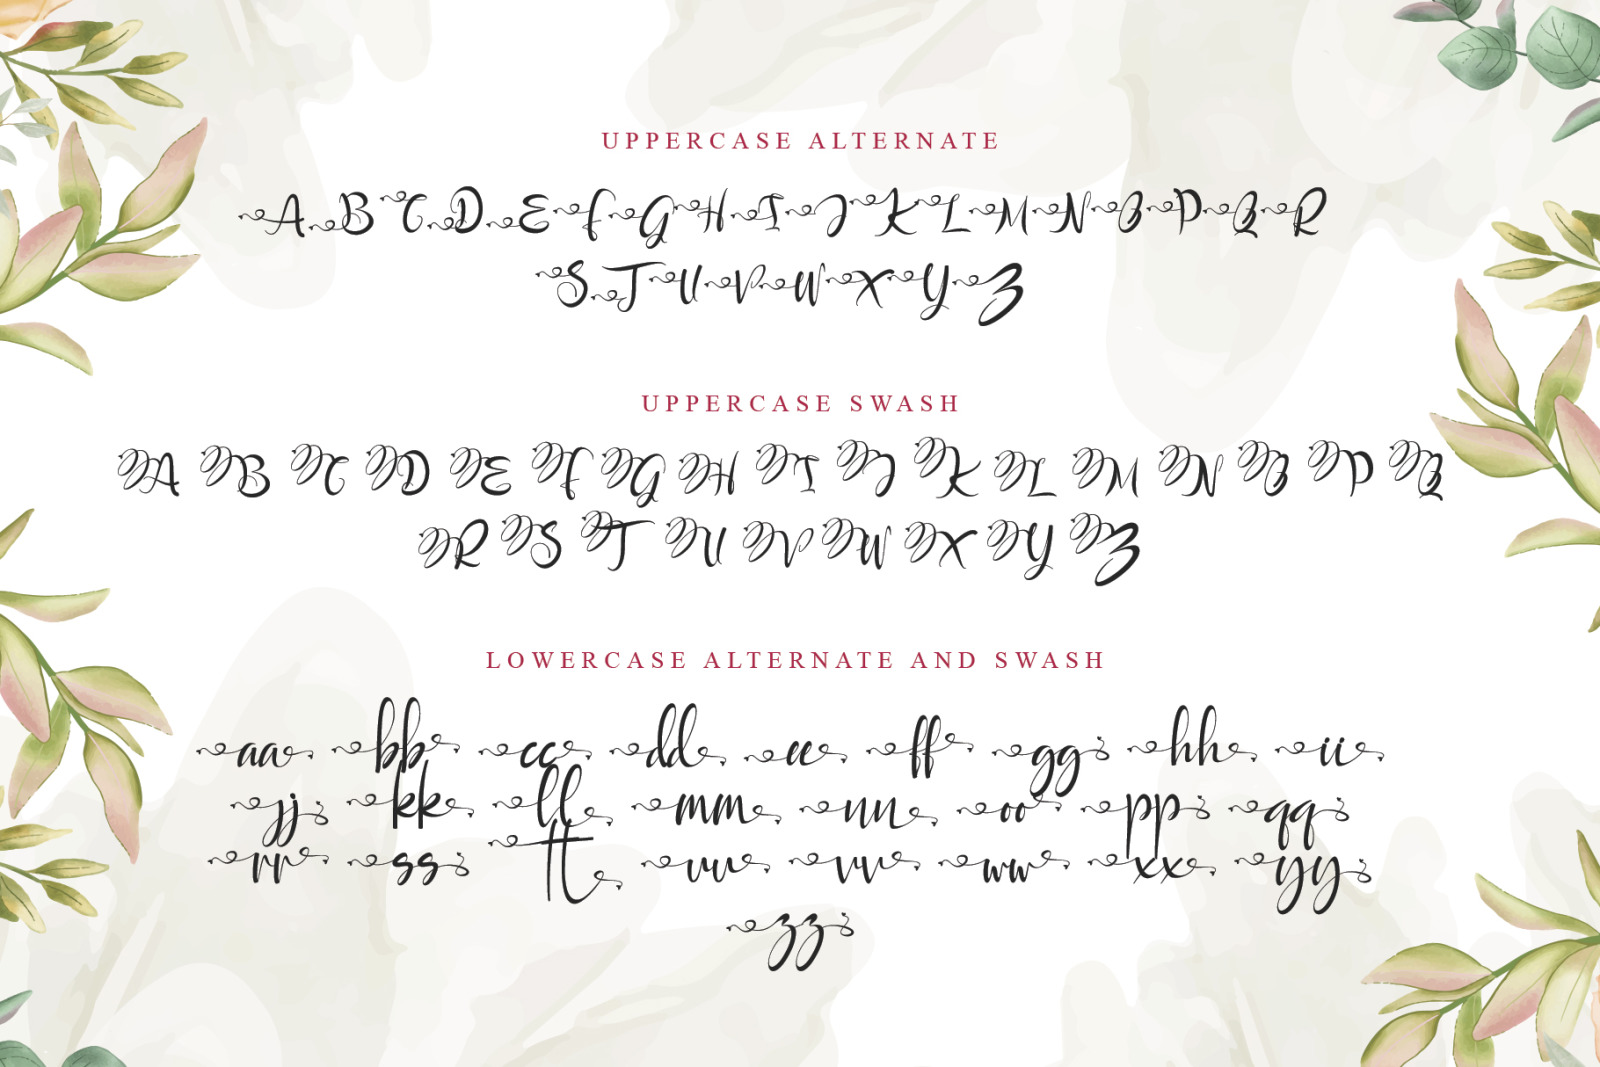 UPPERCASE ALTERNATE
A B C D E F G H I J K L M N O P Q R
S T U V W X Y Z
UPPERCASE SWASH
A B C D E F G H I J K L M N O P Q
R S T U V W X Y Z
LOWERCASE ALTERNATE AND SWASH
aa bb cc dd ee ff gg hh ii
jj kk ll mm nn oo pp qq
rr ss tt uu vv ww xx yy
zz